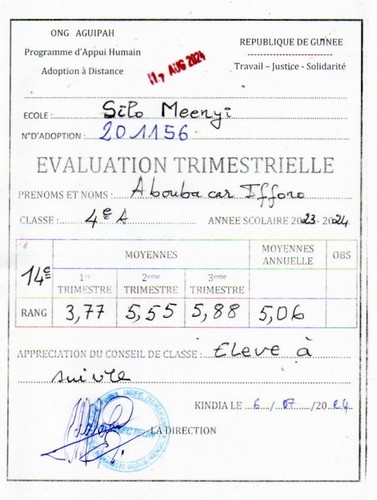 ONG AGUIPAH
Programme d'Appui Humain
Adoption à Distance
17 AUG 2024
REPUBLIQUE DE GUINEE
Travail – Justice - Solidarité
ECOLE : Silo Meenyi
N°D'ADOPTION : 201156
EVALUATION TRIMESTRIELLE
PRENOMS ET NOMS : Abouba car Iffono
CLASSE : 4e A ANNEE SCOLAIRE 2023-2024
14e MOYENNES MOYENNES ANNUELLE OBS
1er TRIMESTRE 2ème TRIMESTRE 3ème TRIMESTRE
RANG 3,77 5,55 5,88 5,06
APPRECIATION DU CONSEIL DE CLASSE : Eleve à
suivre
KINDIA LE 6/07/2024
LA DIRECTION